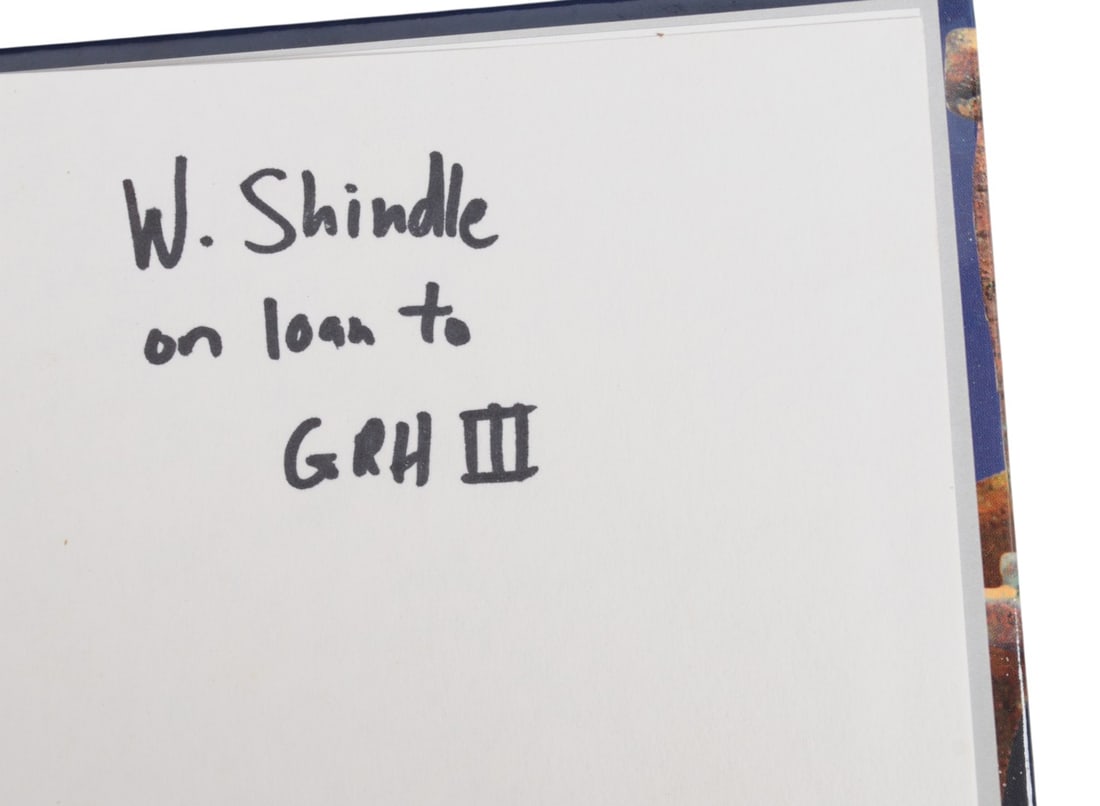 W. Shindle
on loan to
GRH III